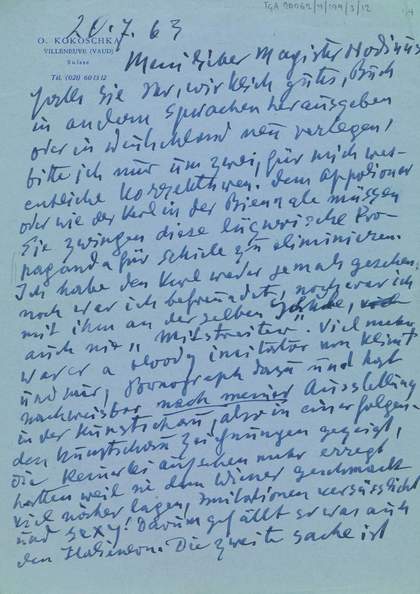 TGA 20062/4/199/3/12
20.7.63
O. KOKOSCHKA
VILLENEUVE (VAUD)
Suisse
Tél. (021) 60 13 12
Mein lieber Magister Hodin
falls Sie Ihr, wirklich gutes, Buch
in andern Sprachen herausgeben
oder in Deutschland neu verlegen,
bitte ich nur um zwei, für mich wes-
entliche Korrekturen. Dem Appolioner
oder wie der Kerl in der Biennale müssen
Sie zwingen diese lügnerische Pro-
paganda für Schiele zu eliminieren.
Ich habe den Kerl weder jemals gesehen,
noch war ich befreundet, noch war ich
mit ihm an der selben Schule,
auch nie "Mitstreiter". Vielmehr
war er a bloody imitator von Klimt
und mir, Pornograph dazu und hat
nachweisbar nach meiner Ausstellung
in der Kunstschau, also in einer folgen-
den Kunstschau Zeichnungen gezeigt,
die keinerlei aufsehen mehr erregt
hatten weil sie dem Wiener geschmack
viel näher lagen, Imitationen versüsslicht
und sexy! Darum gefällt er was auch
den Italienern. Die zweite Sache ist